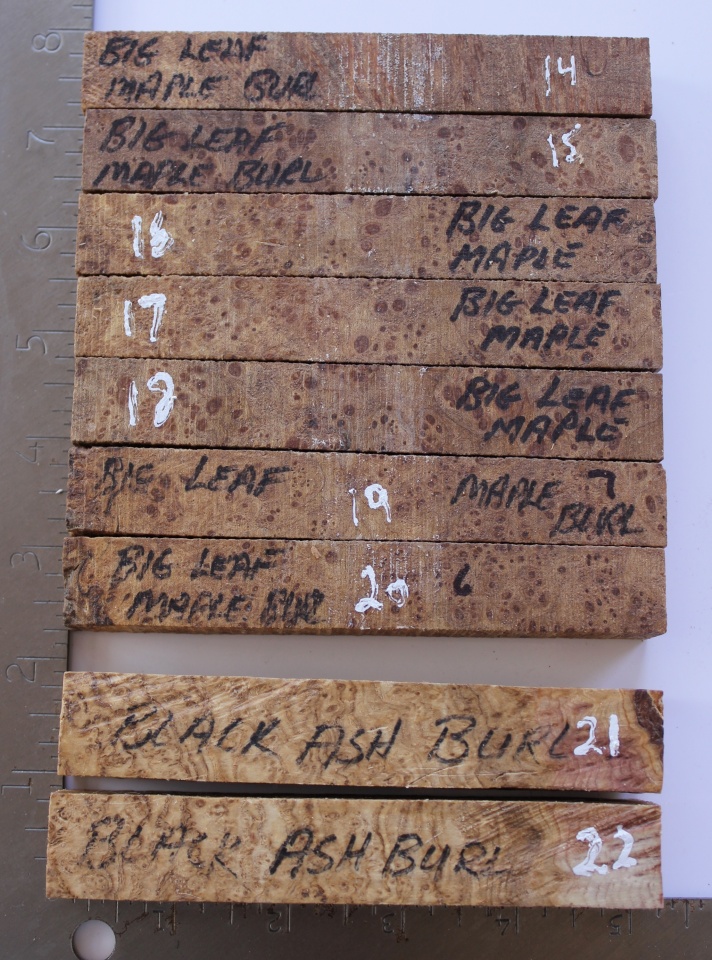 8
BIG LEAF
MAPLE BURL
14
7
BIG LEAF
MAPLE BURL
15
6
16
BIG LEAF
MAPLE
5
17
BIG LEAF
MAPLE
4
18
BIG LEAF
MAPLE
3
BIG LEAF 19 MAPLE 7
BURL
BIG LEAF
MAPLE BUR
20 6
2
BLACK ASH BURL 21
1
BLACK ASH BURL 22
1 2 3 4 5